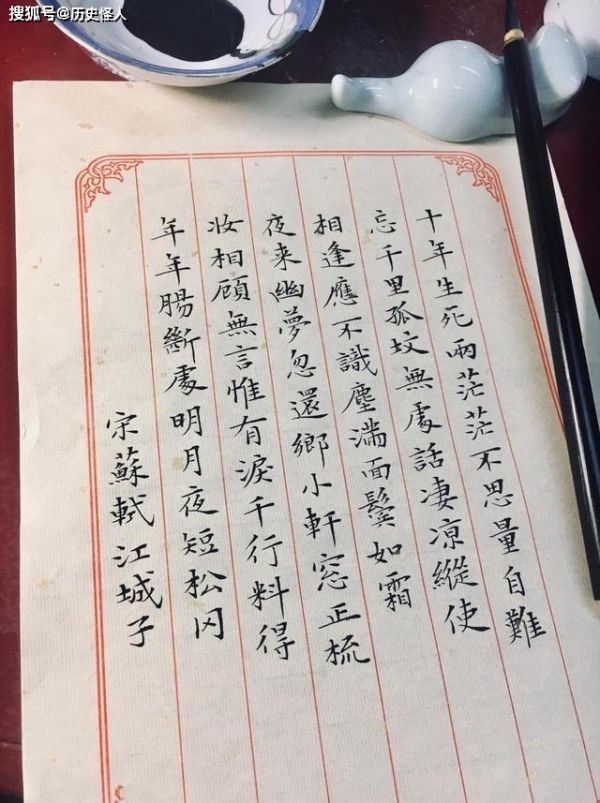 搜狐号@历史怪人
十年生死兩茫茫不思量自難
忘千里孤坟無處話凄凉縱使
相逢應不識塵滿面鬓如霜
夜来幽夢忽還鄉小軒窓正梳
妝相顧無言惟有淚千行料得
年年腸斷處明月夜短松冈
宋蘇軾江城子